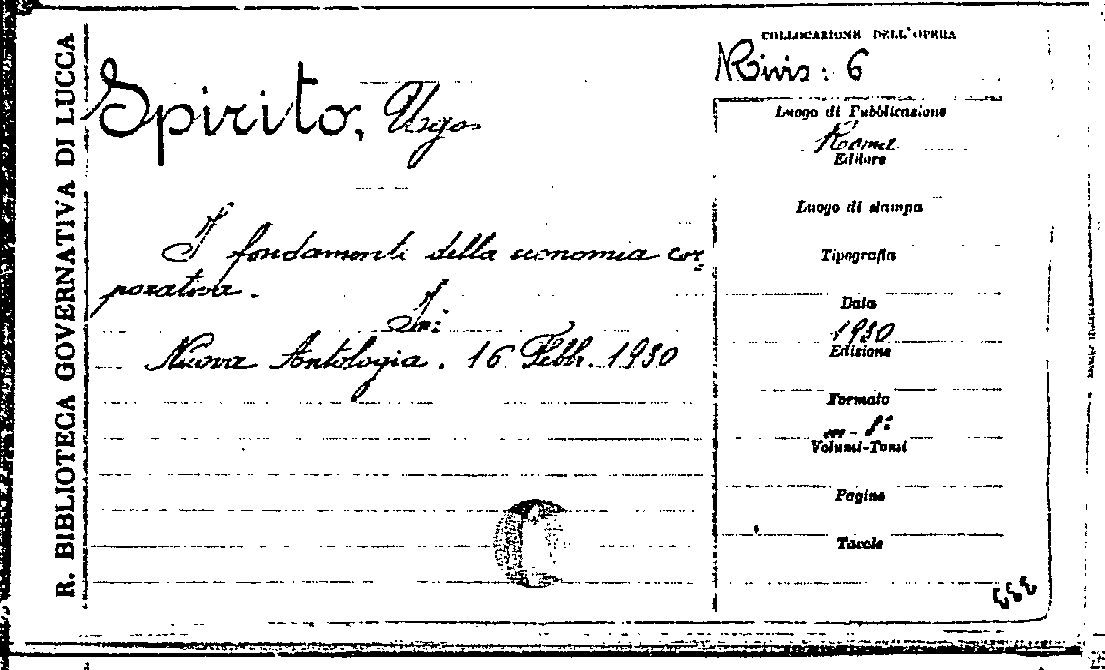 R. BIBLIOTECA GOVERNATIVA DI LUCCA
Spirito, Ugo
I fondamenti della economia cor
porativa.
In:
Nuova Antologia. 16 Febbr. 1930
COLLOCAZIONE DELL'OPERA
Rivis: 6
Luogo di Pubblicazione
Roma
Editore
Luogo di stampa
Tipografia
Data
1930
Edizione
Formato
in-8°
Volumi-Tomi
Pagine
Tavole